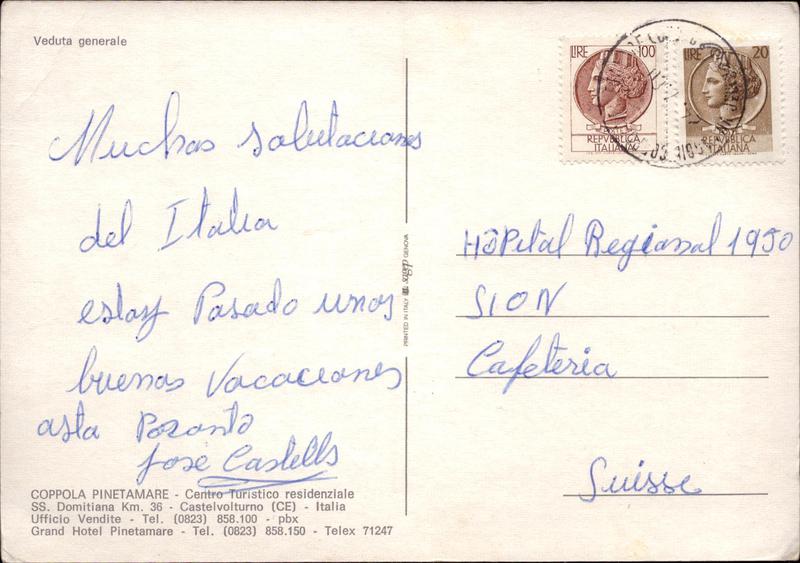 Veduta generale
LIRE 100
REPVBBLICA
ITALIANA
LIRE 20
REPVBBLICA
ITALIANA
Muchas Salutaciones
del Italia
estay Pasado unos
buenas Vacaciones
asta Poronto
Jose Castells
Hôpital Regional 1950
SION
Cafeteria
Suisse
PRINTED IN ITALY GENOVA
COPPOLA PINETAMARE - Centro Turistico residenziale
SS. Domitiana Km. 36 - Castelvolturno (CE) - Italia
Ufficio Vendite - Tel. (0823) 858.100 - pbx
Grand Hotel Pinetamare - Tel. (0823) 858.150 - Telex 71247